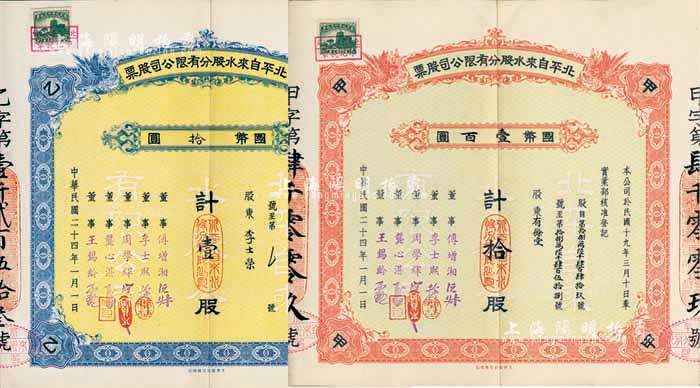 北平自來水股分有限公司股票
乙
國幣拾圓
計壹股
股東 李士榮
號至第
號
董事 傅增湘
董事 李士熙
董事 周學輝
董事 龔心湛
董事 王錫齡
中華民國二十四年一月一日
乙字第
號
乙
北平自來水股分有限公司股票
甲
甲
國幣壹百圓
本公司於民國十九年三月十日奉
實業部核准登記
計拾股
股東有餘堂
董事 傅增湘
董事 李士熙
董事 周學輝
董事 龔心湛
董事 王錫齡
中華民國二十四年一月一日
甲字第肆千零零玖號
甲
甲
上海陽明拍賣